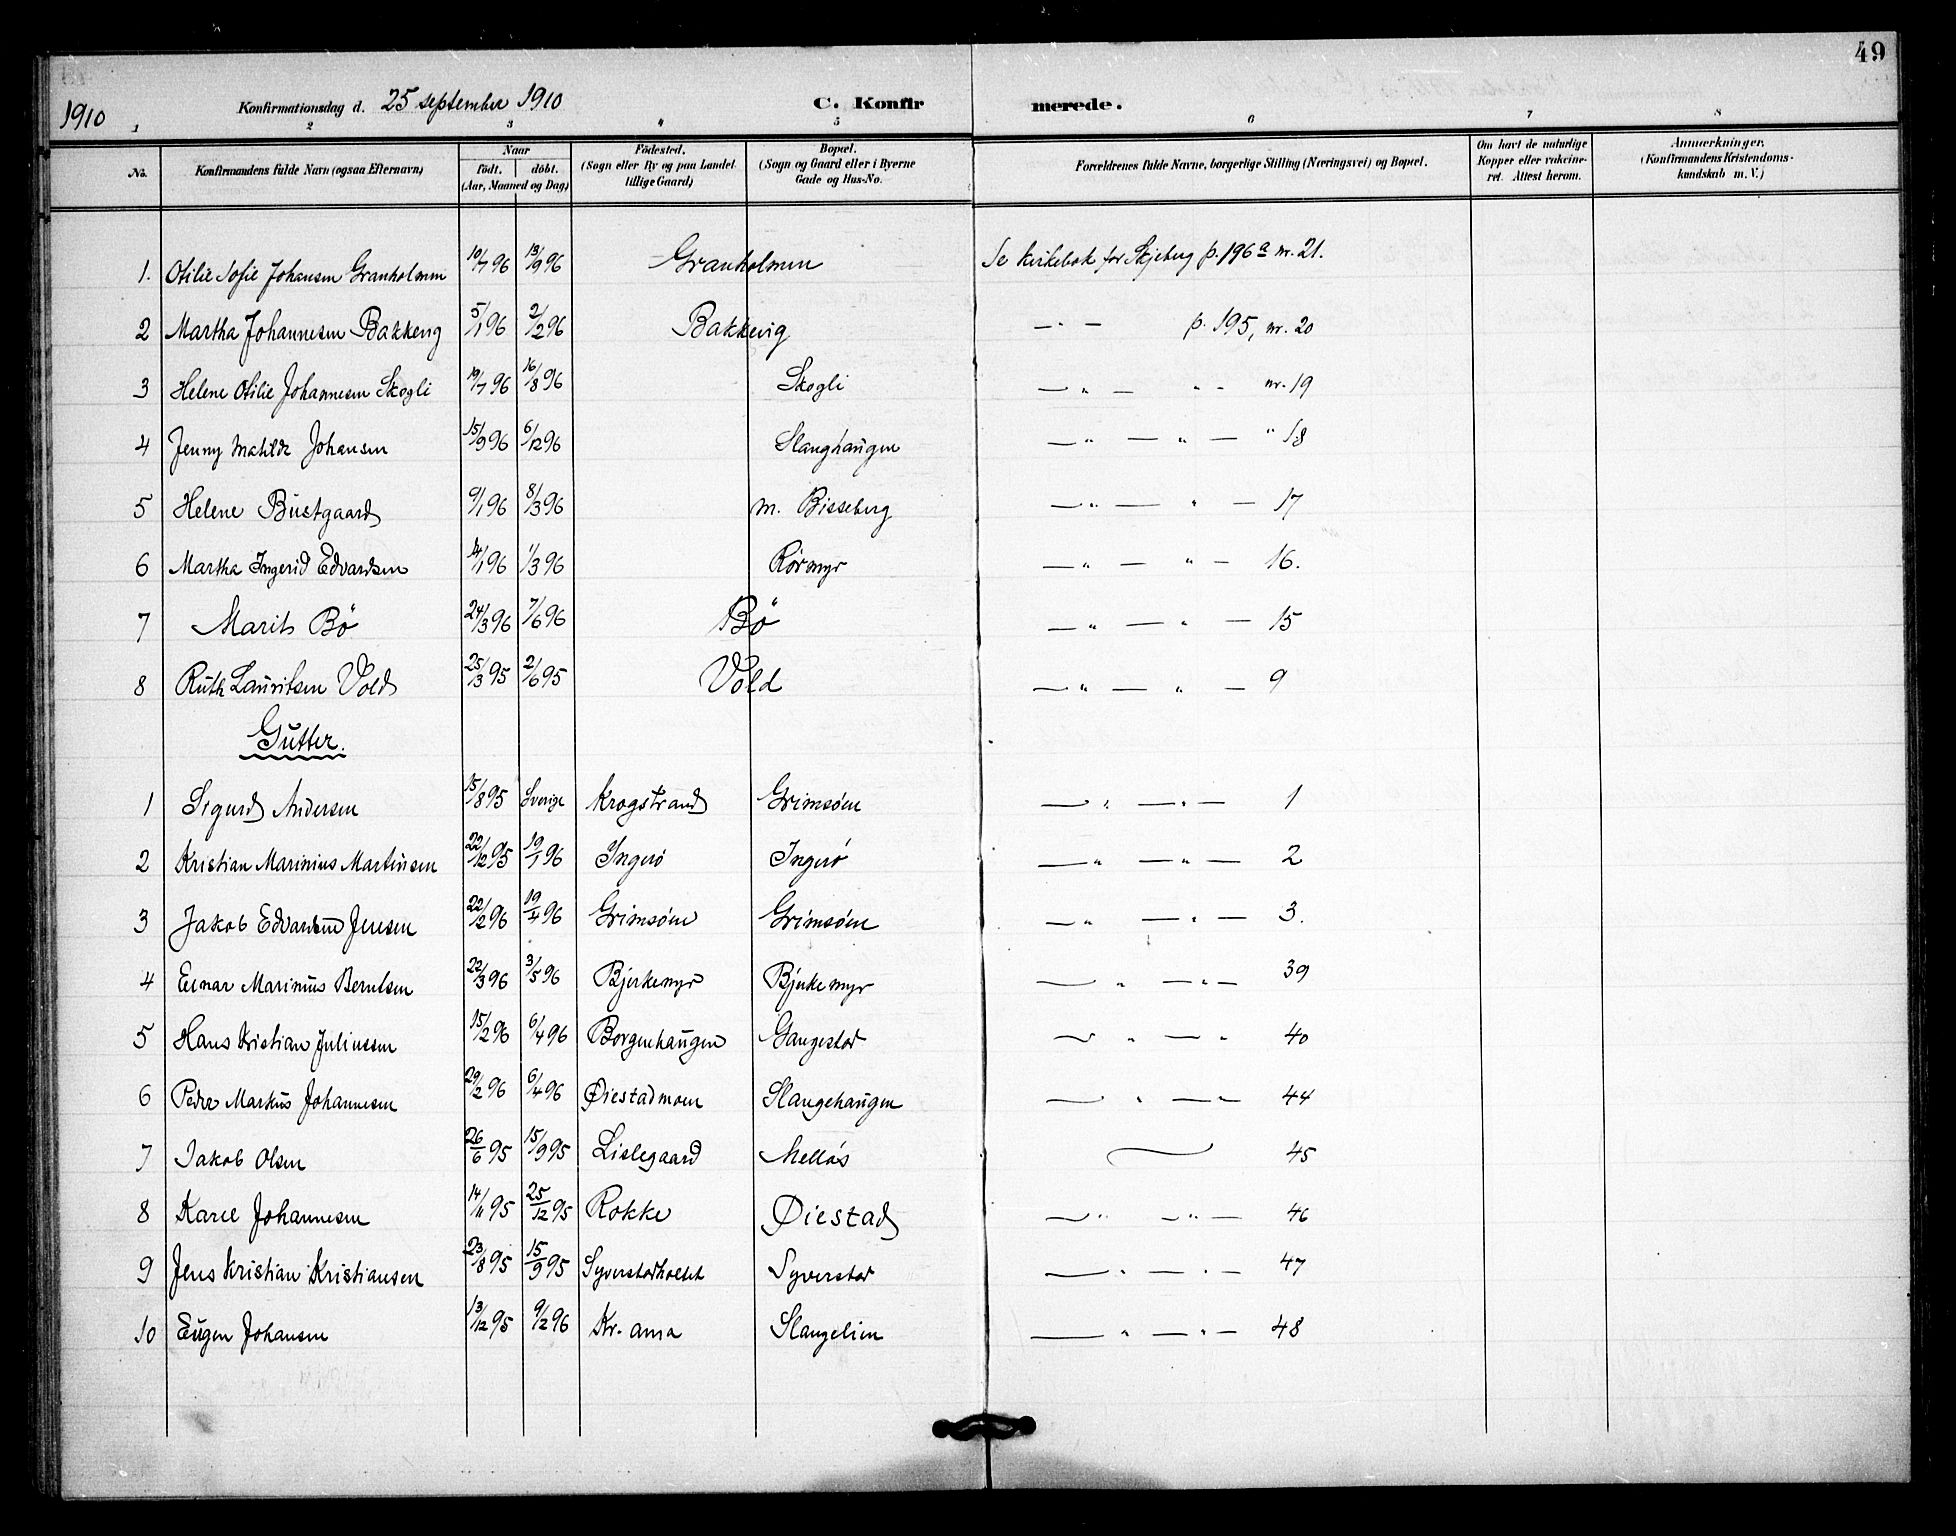 49
1910 Konfirmationsdag d. 25 september 1910 C. Konfirmerede.
1 2 3 4 5 6 7 8
No. Konfirmandens fulde Navn (ogsaa Efternavn) Naar födt. döbt. (Aar, Maaned og Dag) Födested. (Sogn eller By og paa Landet tillige Gaard) Bopæl. (Sogn og Gaard eller i Byerne Gade og Hus-No. Forældrenes fulde Navne, borgerlige Stilling (Næringsvei) og Bopæl. Om havt de naturlige Kopper eller vakcineret. Attest herom. Anmærkninger. (Konfirmandens Kristendomskundskab m. V.)
1. Otilie Sofie Johansen Granholmen 19/7 96 13/9 96 Granholmen Se kirkebok for Skjeberg p. 196a nr. 21.
2 Martha Johannesen Bakkevig 5/1 96 2/2 96 Bakkevig — " — p. 195, nr. 20
3 Helene Otilie Johannesen Skogli 19/7 96 16/8 96 Skogli — " — " - nr. 19
4 Jenny Matilde Johansen 15/9 96 6/12 96 Slanghaugen — " — " — " 18
5 Helene Bustgaard 9/1 96 8/3 96 m. Bisseberg — " — " — 17
6 Martha Ingerid Edvardsen 14/1 96 1/3 96 Rörmyr — " — " — 16.
7 Marit Bö 24/3 96 7/6 96 Bö — " — " — 15
8 Ruth Lauritsen Vold 25/3 95 2/6 95 Vold — " — " — 9
Gutter.
1 Sigurd Andersen 15/8 95 Sverige Krogstrand Grimsöen — " — " — 1
2 Kristian Marinius Martinsen 22/12 95 19/1 96 Ingerö Ingerö — " — " — 2
3 Jakob Edvardsen Jensen 22/12 96 19/4 96 Grimsöen Grimsöen — " — " — 3.
4 Einar Marinius Berntsen 22/3 96 3/5 96 Bjerkemyr Bjerkemyr — " — " — 39
5 Hans Kristian Juliussen 15/2 96 6/4 96 Borgenhaugen Gangestad — " — " 40
6 Peder Markus Johannesen 29/2 96 6/4 96 Øiestadmoen Slangehaugen — " — " — 44
7 Jakob Olsen 26/6 95 15/9 95 Lislegaard Mellös — 45
8 Karel Johannesen 14/11 95 25/12 95 Rokke Øiestad — " — " — 46
9 Jens Kristian Kristiansen 23/8 95 15/9 95 Syverstadholtet Syverstad — " — " — 47
10 Eugen Johansen 13/12 95 9/2 96 Kr. ania Slangelien — " — " — 48